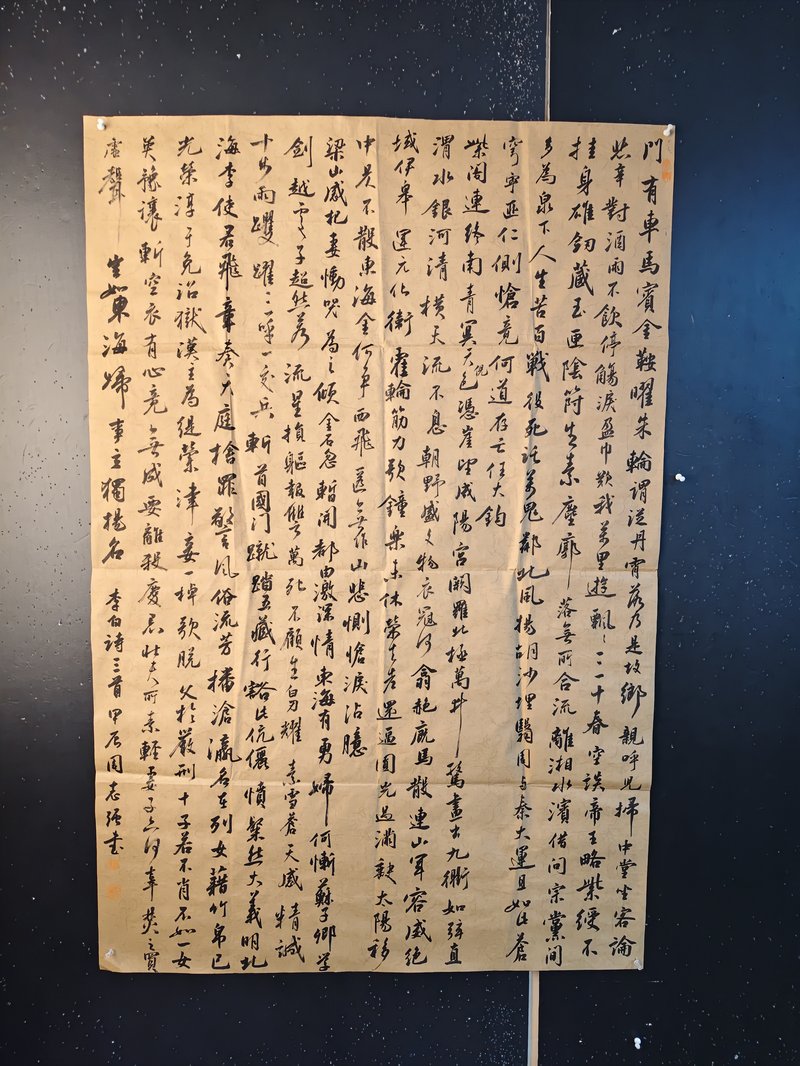 門有車馬賓金鞍曜朱輪謂從丹霄落乃是故鄉親呼兒掃中堂坐客論
悲辛對酒兩不飲停觴淚盈巾歎我萬里遊飄〻三十春空談帝王略紫綬不
挂身雄劍藏玉匣陰符生素塵廓落無所合流離湘水濱借問宗黨間
多為泉下人生苦百戰役死託萬鬼鄰北風揚胡沙埋翳周與秦大運且如此蒼
穹寧匪仁惻愴竟何道存亡任大鈞
紫閣連終南青冥天倪色憑崖望咸陽宮闕羅北極萬井驚畫出九衢如弦直
渭水銀河清橫天流不息朝野盛文物衣冠何翕赩廄馬散連山軍容威絕
域伊皋運元化衛霍輪筋力歌鐘樂未休榮去老還逼圓光過滿缺太陽移
中昃不散東海金何爭西飛匿無作山悲惻愴淚沾臆
梁山感杞妻慟哭為之傾金石忽暫開都由激深情東海有勇婦何慚蘇子卿學
劍越處子超然若流星損軀報讎萬死不顧生白刃耀素雪蒼天感精誠
十步兩躩躍三呼一交兵斬首國門蹴踏五藏行豁此伉儷憤粲然大義明北
海李使君飛章奏天庭捨罪警風俗流芳播滄瀛名在列女藉竹帛已
光榮淳于免詔獄漢主為緹縈津妾一棹歌脫父於嚴刑十子若不肖不如一女
英豫讓斬空衣有心竟無成要離殺慶忌壯夫所素輕妻子亦何辜焚之買
虛聲豈如東海婦事立獨揚名 李白詩三首甲辰周志強書